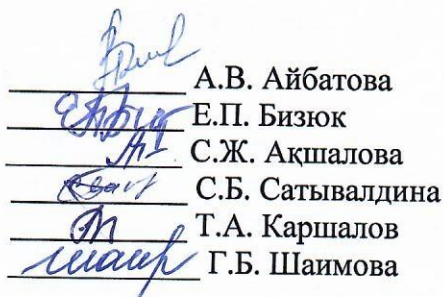 А.В. Айбатова
Е.П. Бизюк
С.Ж. Ақшалова
С.Б. Сатывалдина
Т.А. Каршалов
Г.Б. Шаимова